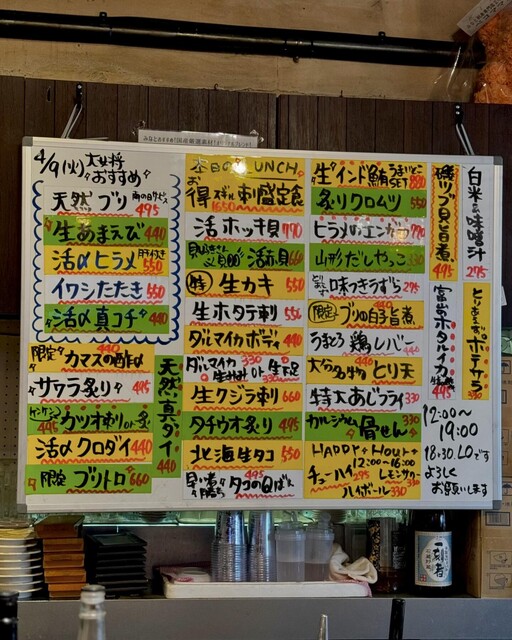 4/9(火) 大将
おすすめ
天然ブリ 雨の日サービス 495
生あまえび 440
活〆ヒラメ 肝付き 550
イワシたたき 550
活〆真コチ 440
限定 カマスの酢〆 440
サワラ炙り 495
カツオ刺 or
495 440
活〆クロダイ 440
限定 ブリトロ 660
天然真ダイ 440
本日のLUNCH
お得 刺盛定食
1650
活ホッキ貝 770
活赤貝 660
生カキ 550
生ホタテ刺 550
ダルマイカボディ 440
ダルマイカ 330
生げそ
生クジラ刺 660
タチウオ炙り 495
北海生タコ 550
早い者勝ち タコの
生インドまぐろ SET 880
炙りクロムツ 550
ヒラメのエンガワ 770
山形だしやっこ 330
味つきうずら 295
限定 ブリ白子旨煮 440
うまとろ 鶏レバー 440
大分名物 とり天
特大あじフライ 330
カルシウム 骨せん 330
HAPPY Hour
12:00〜16:00
チューハイ 295 レモンサワー 330
ハイボール 330
磯ツブ貝旨煮 495
富山ホタルイカ 495
白米&味噌汁 295
とりあえずポテサラ 330
12:00〜
19:00
18:30.L.Oです
よろしく
お願いします
一刻者